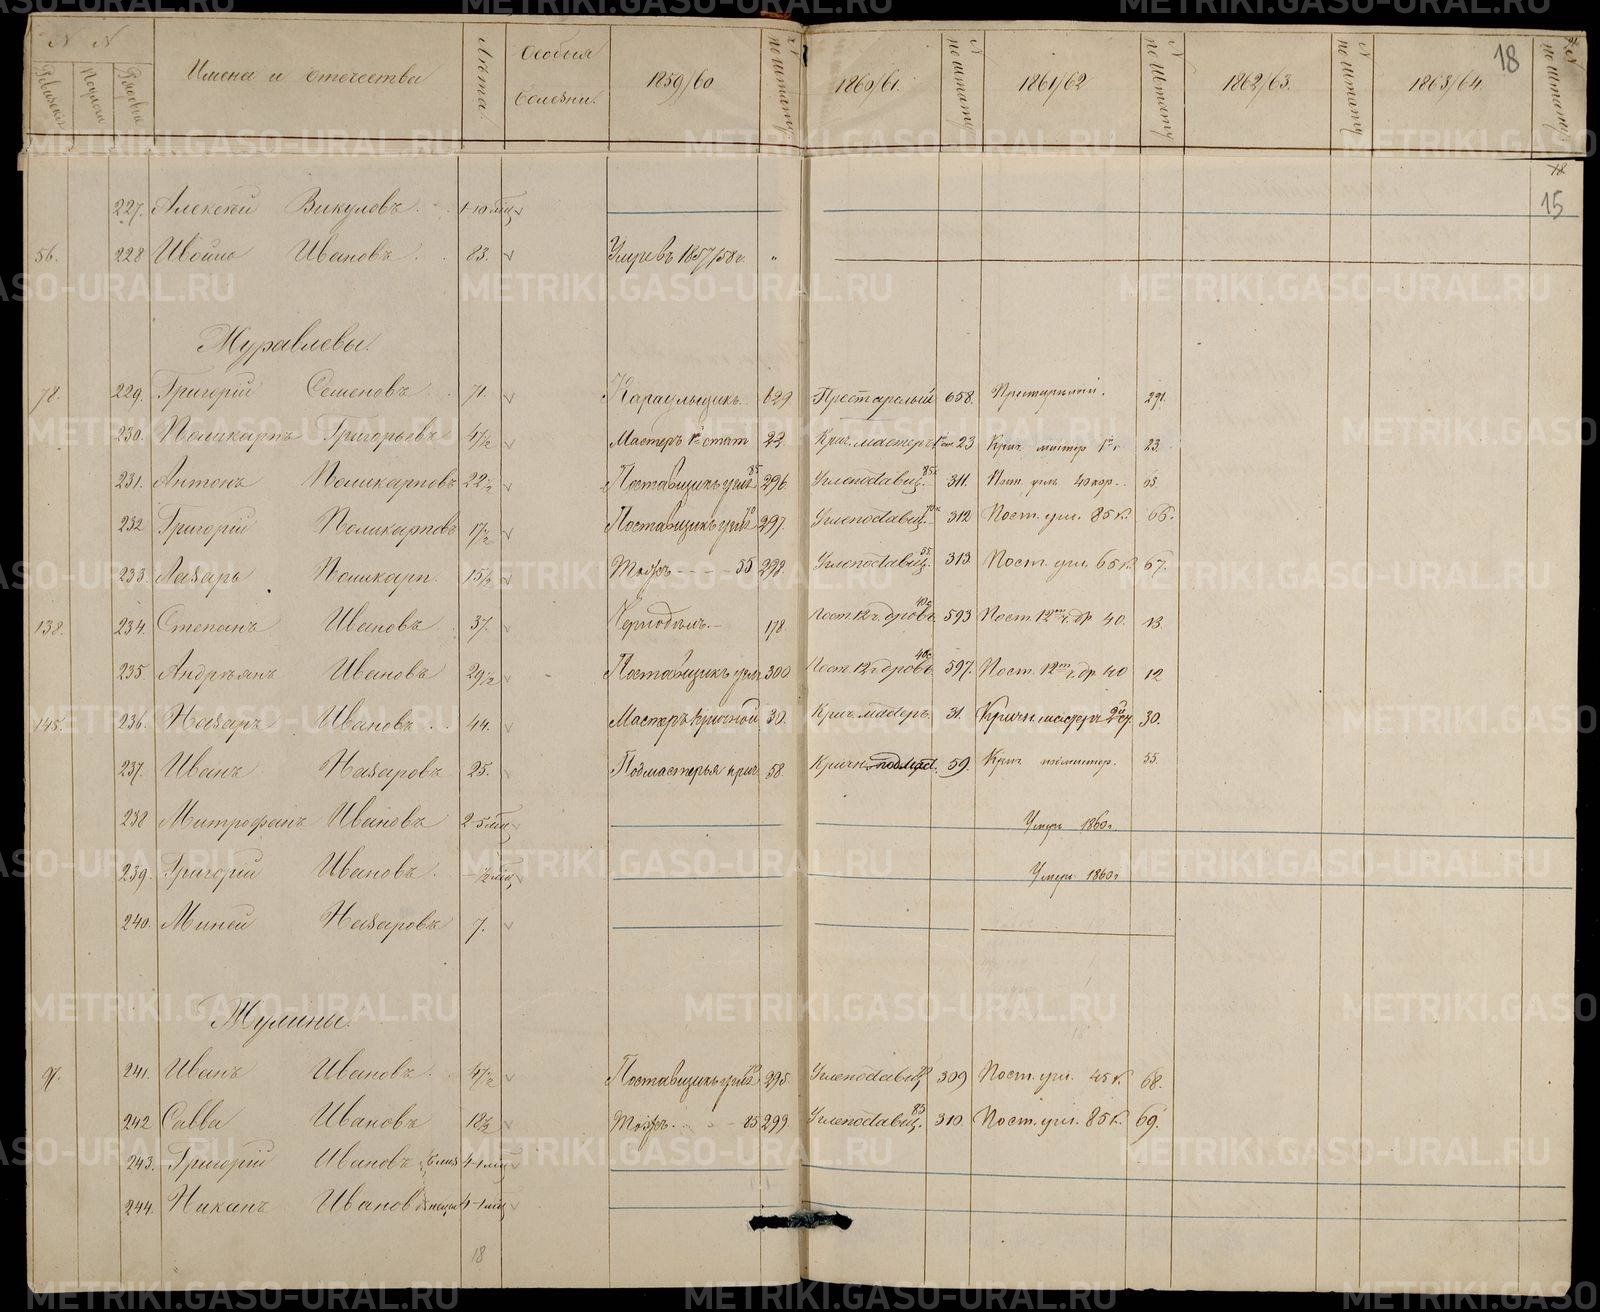 N N
Ревизскіе
Рядовые
Имена и отчества
Лѣта.
Особыя болезни.
1859/60
№ по штату
1860/61.
№ по штату
1861/62
№ по штату
1862/63.
№ по штату
1863/64.
№ по штату
18
15
227. Алексѣй Викуловъ. 1-10 мѣс
56. 228 Ивойло Ивановъ. 83. Умре въ 1857/58 г. "
Муравлевы.
78. 229. Григорій Семеновъ. 71. Караульщикъ. 629 Престарелый 658. Престарелый. 291.
230. Поликарпъ Григорьевъ 47/2 Мастеръ 1й стат 22. Крич. мастеръ 1й ст. 23 Крич. мастер 1й с 23.
231. Антонъ Поликарповъ 22 1/2 Поставщикъ угля 85 296. Углепоставщ. 85к 311. Пост. угля 40 кор. 65.
232 Григорій Поликарповъ 17/2 Поставщикъ угля 70 297. Углепоставщ. 70к 312 Пост. угл. 85 к. 66.
233. Лазарь Поликарп. 15/2 Тожъ - - - 55 298. Углепоставщ. 55. 313. Пост. угл. 65 к. 67.
138. 234. Степанъ Ивановъ. 37. Чернодѣлъ. 178. Пост. 12 ч. дровъ 40с 593 Пост. 12ти ч. др 40. 13.
235. Андреянъ Ивановъ 29/2 Поставщикъ угля 300 Пост. 12 ч дровъ 40с 597. Пост. 12ти ч. др 40 12
145. 236. Назаръ Ивановъ. 44. Мастеръ кричной 30. Крич. мастеръ. 31. Кричн. мастеръ 2й ст. 30.
237. Иванъ Назаровъ 25. Подмастерья крич 58. Кричн. подмаст. 59. Крич подмастер. 55.
238 Митрофанъ Ивановъ 2-5 мѣс Умеръ 1860 г.
239. Григорій Ивановъ. - 1/2 мѣс Умеръ 1860 г
240. Миней Назаровъ 7.
Жулины.
97. 241. Иванъ Ивановъ. 47/2 Поставщикъ угля 70 295. Углепоставщ 70 309 Пост. угл. 45 к. 68.
242 Савва Ивановъ 18/2 Тожъ. - - 85 299 Углепоставщ. 85 310. Пост. угл. 85 к. 69.
243. Григорій Ивановъ близ 4-1 мѣс
244. Никанъ Ивановъ близнецы 4-1 мѣс
18
METRIKI.GASO-URAL.RU